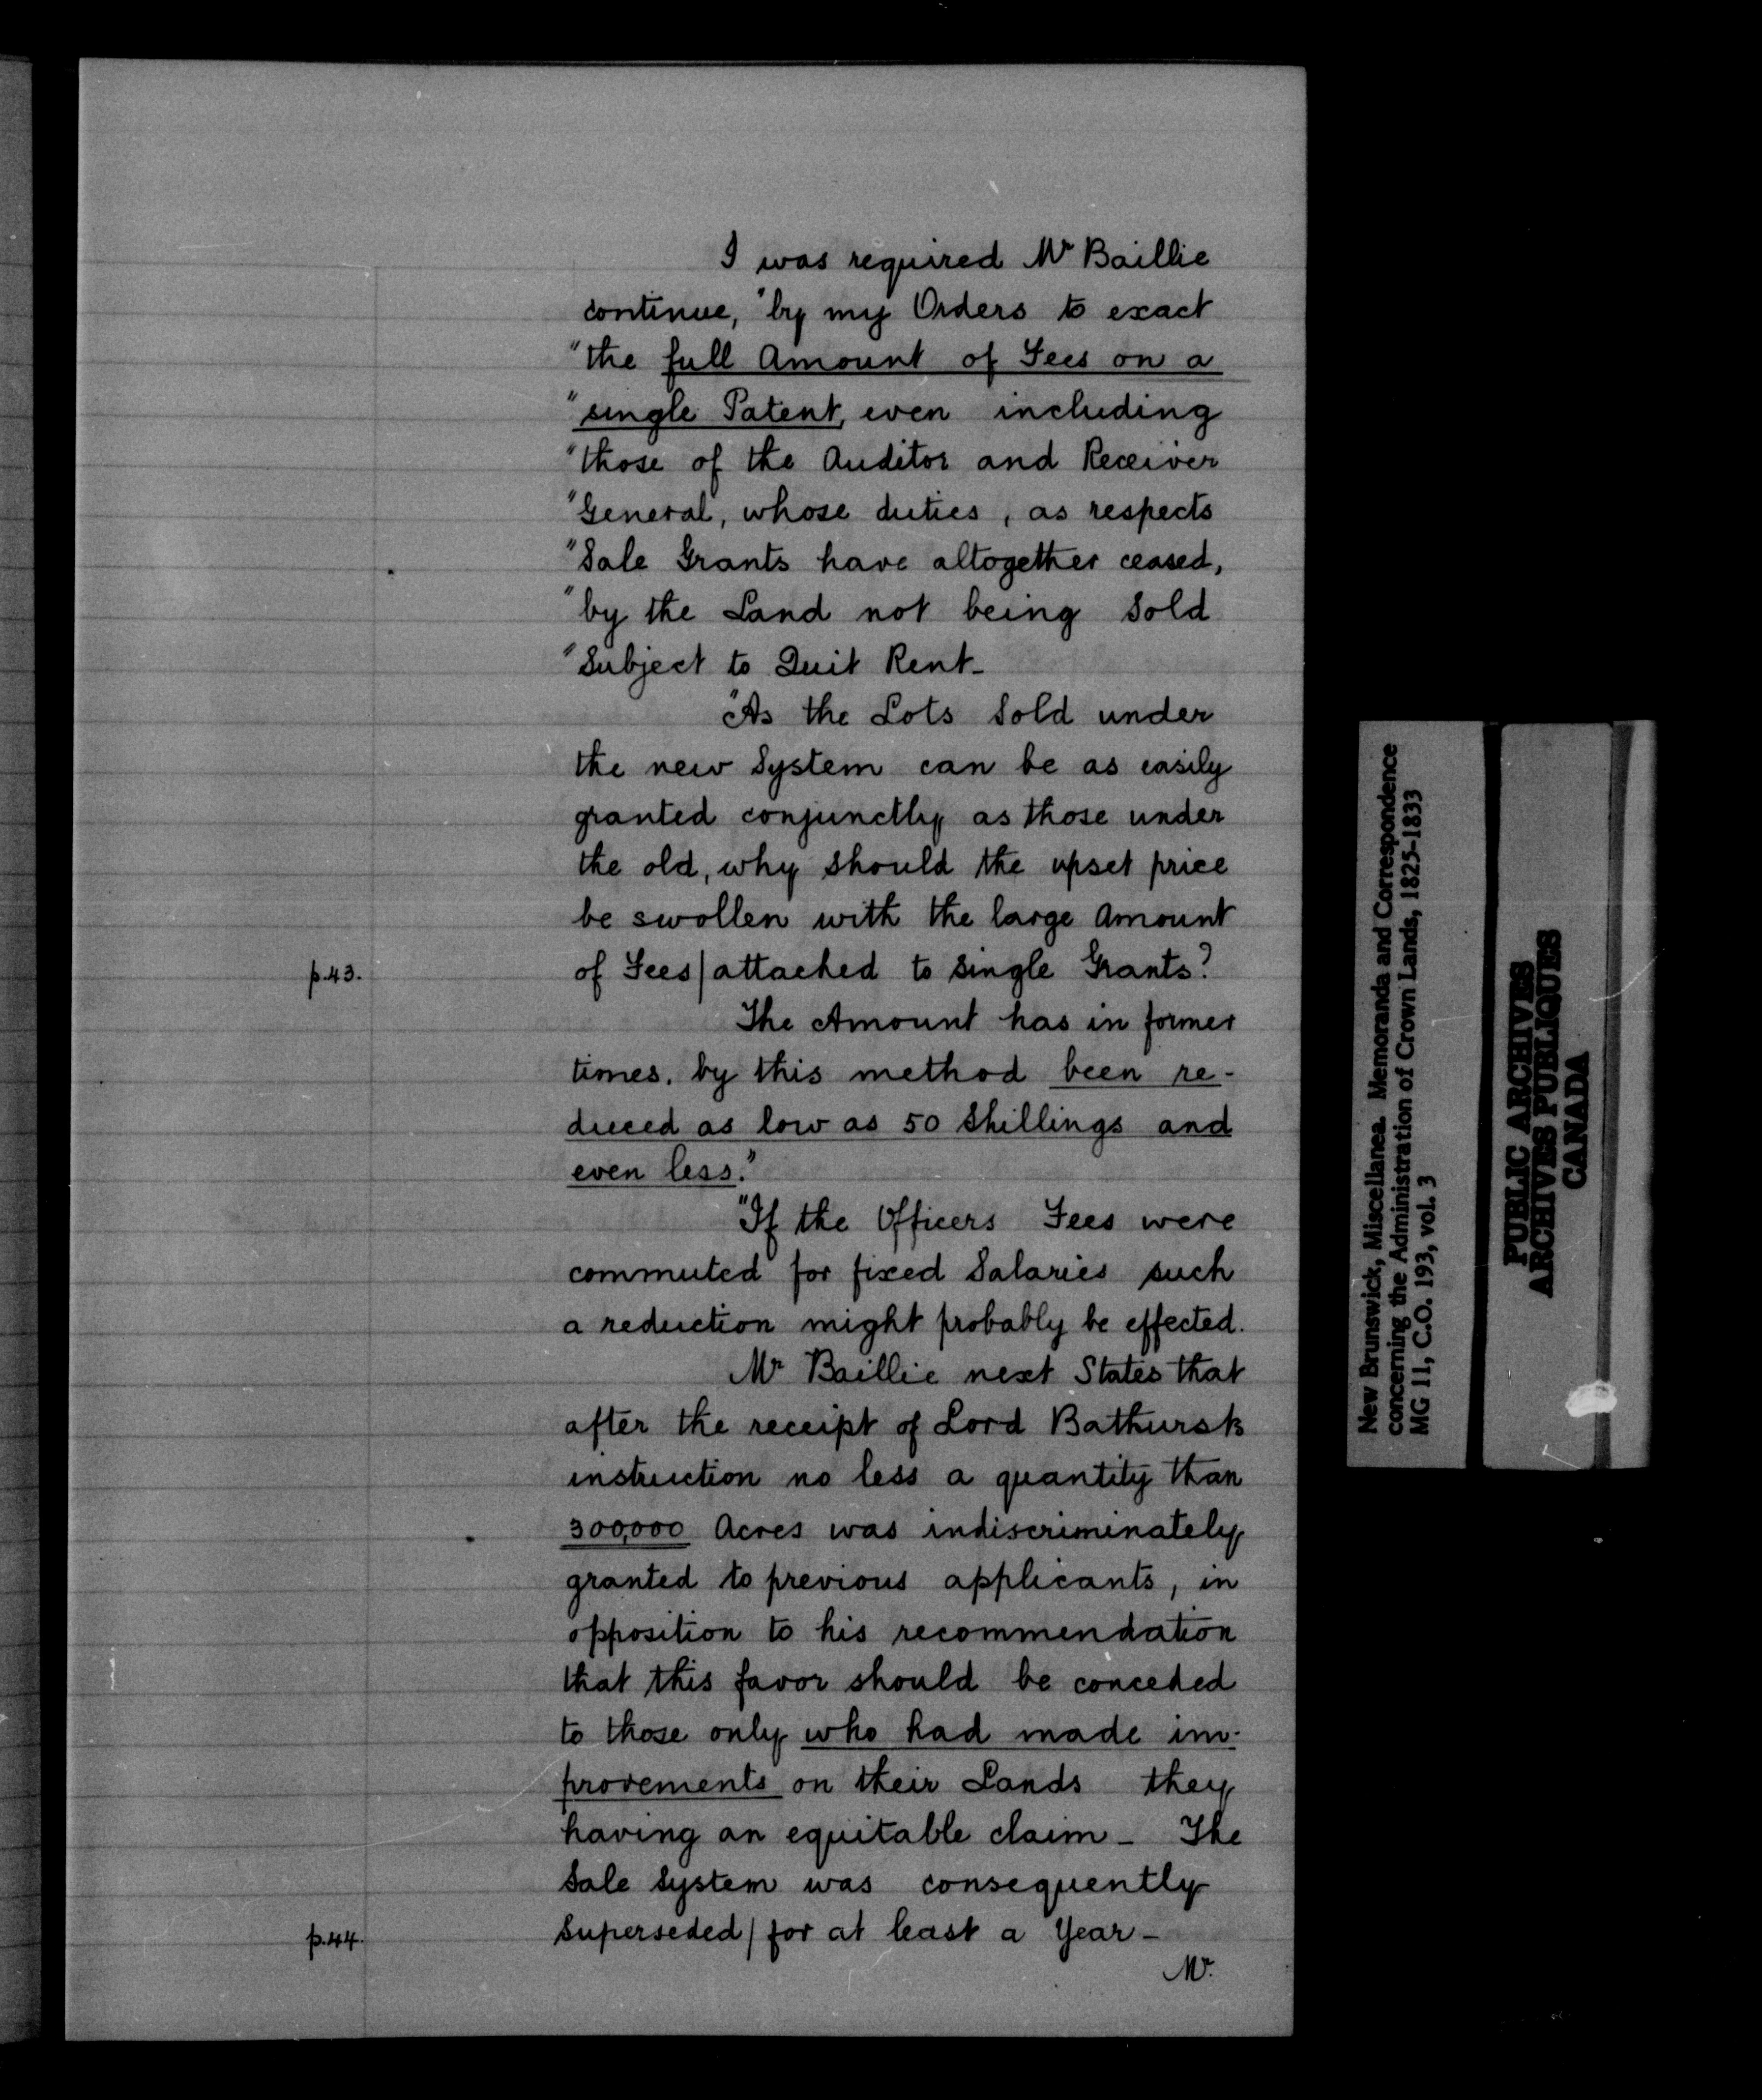 I was required Mr Baillie
continue, "by my Orders to exact
"the full Amount of Fees on a
"single Patent, even including
"those of the Auditor and Receiver
"General, whose duties, as respects
"Sale Grants have altogether ceased,
"by the Land not being Sold
"Subject to Quit Rent_
"As the Lots Sold under
the new System can be as easily
granted conjunctly as those under
the old, why should the upset price
be swollen with the large Amount
p.43. of Fees/attached to Single Grants?
The Amount has in former
times, by this method been re-
duced as low as 50 Shillings and
even less."
"If the Officers Fees were
commuted for fixed Salaries such
a reduction might probably be effected.
Mr Baillie next States that
after the receipt of Lord Bathursts
instruction no less a quantity than
300,000 Acres was indiscriminately
granted to previous applicants, in
opposition to his recommendation
that this favor should be conceded
to those only who had made im-
provements on their Lands they
having an equitable claim_ The
Sale System was consequently
p.44. Superseded/for at least a Year_
Mr.
New Brunswick, Miscellanea. Memoranda and Correspondence
concerning the Administration of Crown Lands, 1825-1833
MG 11, C.O. 193, vol. 3
PUBLIC ARCHIVES
ARCHIVES PUBLIQUES
CANADA